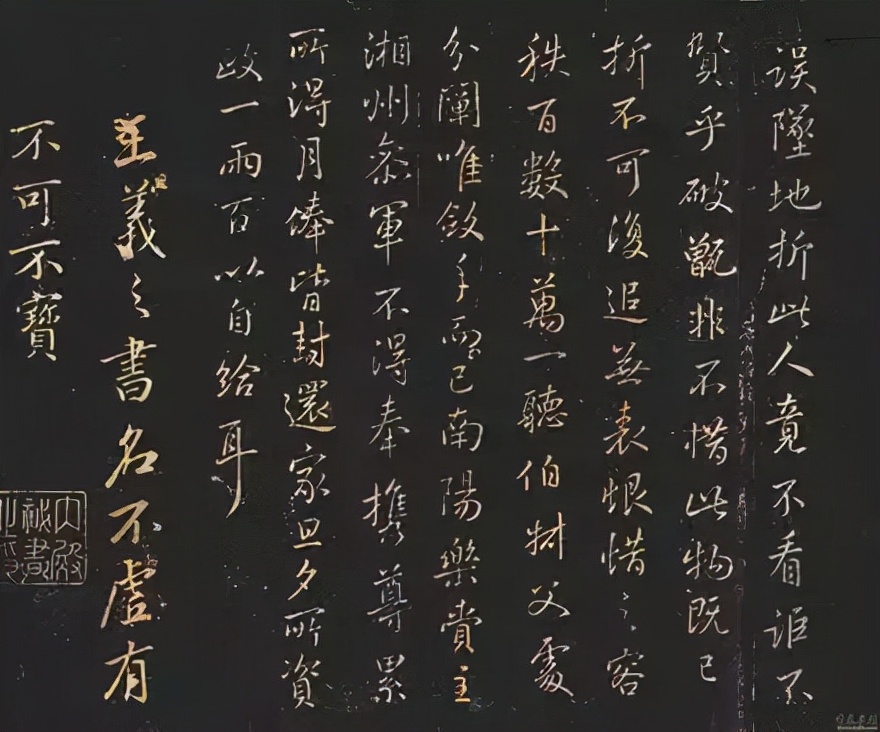 误墬地折此人竟不看詎不
賢乎破甑非不惜此物既已
折不可復追無表恨惜之容
秩百數十萬一聽伯財父處
分闡唯斂手而已南陽樂賞主
湘州叅軍不得奉攜尊累
所得月俸皆封還家旦夕所資
政一兩百以自給耳
王羲之書名不虛有
不可不寶